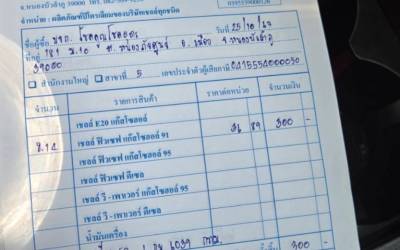 จ.หนองบัวลำภู 39000 โทร.
จำหน่าย : ผลิตภัณฑ์ปิโตรเลียมของบริษัทเชลล์ทุกชนิด
ชื่อผู้ซื้อ บจก. โชคคุณโชคอาร วันที่ 25/10/63
ที่อยู่ 181 ม.10 ต. หนองภัยศูนย์ อ. เมือง จ. หนองบัวลำภู
39000
สำนักงานใหญ่ สาขาที่ 5 เลขประจำตัวผู้เสียภาษี 0415554000050
จำนวน รายการสินค้า ราคาต่อหน่วย จำนวนเงิน
เชลล์ E20 แก๊สโซฮอล์
8.14 เชลล์ ฟิวเซฟ แก๊สโซฮอล์ 91 36 89 300 -
เชลล์ ฟิวเซฟ แก๊สโซฮอล์ 95
เชลล์ ฟิวเซฟ ดีเซล
เชลล์ วี - เพาเวอร์ แก๊สโซฮอล์ 95
เชลล์ วี - เพาเวอร์ ดีเซล
น้ำมันเครื่อง
6039 300 -